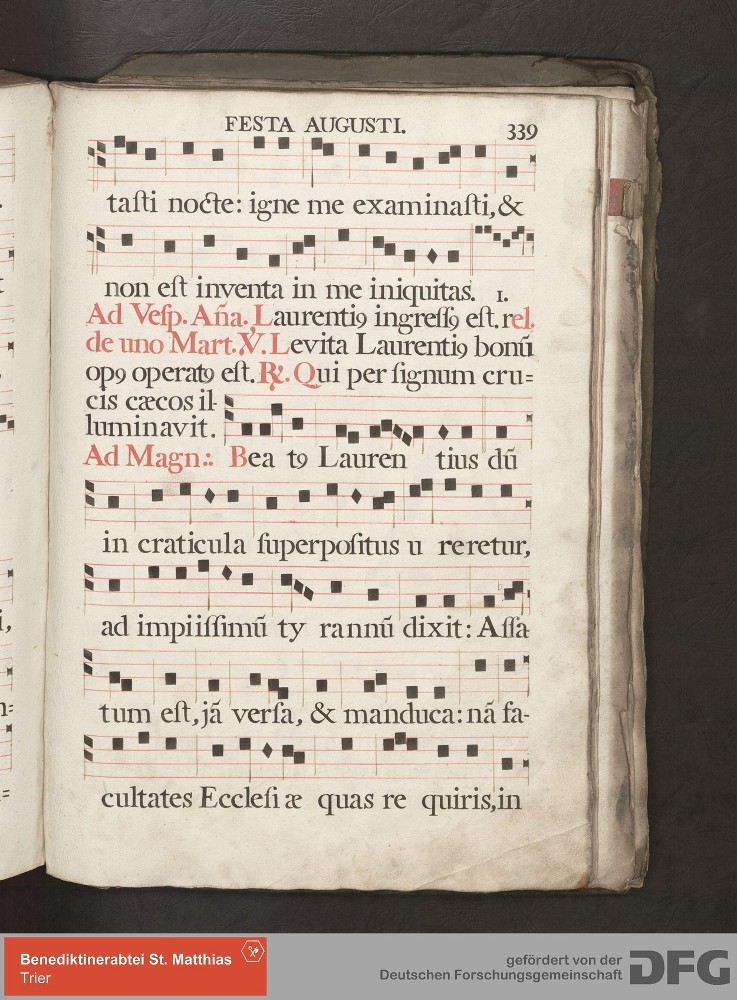 FESTA AUGUSTI.
339
taſti nocte: igne me examinaſti, &
non eſt inventa in me iniquitas. 1.
Ad Veſp. Aña. Laurentiꝰ ingreſſꝰ eſt. rel.
de uno Mart. ℣. Levita Laurentiꝰ bonū
opꝰ operatꝰ eſt. ℟. Qui per ſignum cru=
cis cæcos il-
luminavit.
Ad Magn.: Bea tꝰ Lauren tius dū
in craticula ſuperpoſitus u reretur,
ad impiiſſimū ty rannū dixit: Aſſa-
tum eſt, jā verſa, & manduca: nā fa-
cultates Eccleſi æ quas re quiris, in
Benediktinerabtei St. Matthias
Trier
gefördert von der
Deutschen Forschungsgemeinschaft
DFG